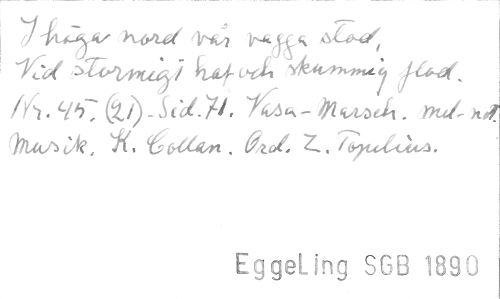 I höga nord vår vagga stod,
Vid stormigt haf och skummig flod.
Nr. 45. (21). Sid. 71. Vasa-Marsch. md-not.
Musik. K. Collan. Ord. Z. Topelius.
EggeLing SGB 1890